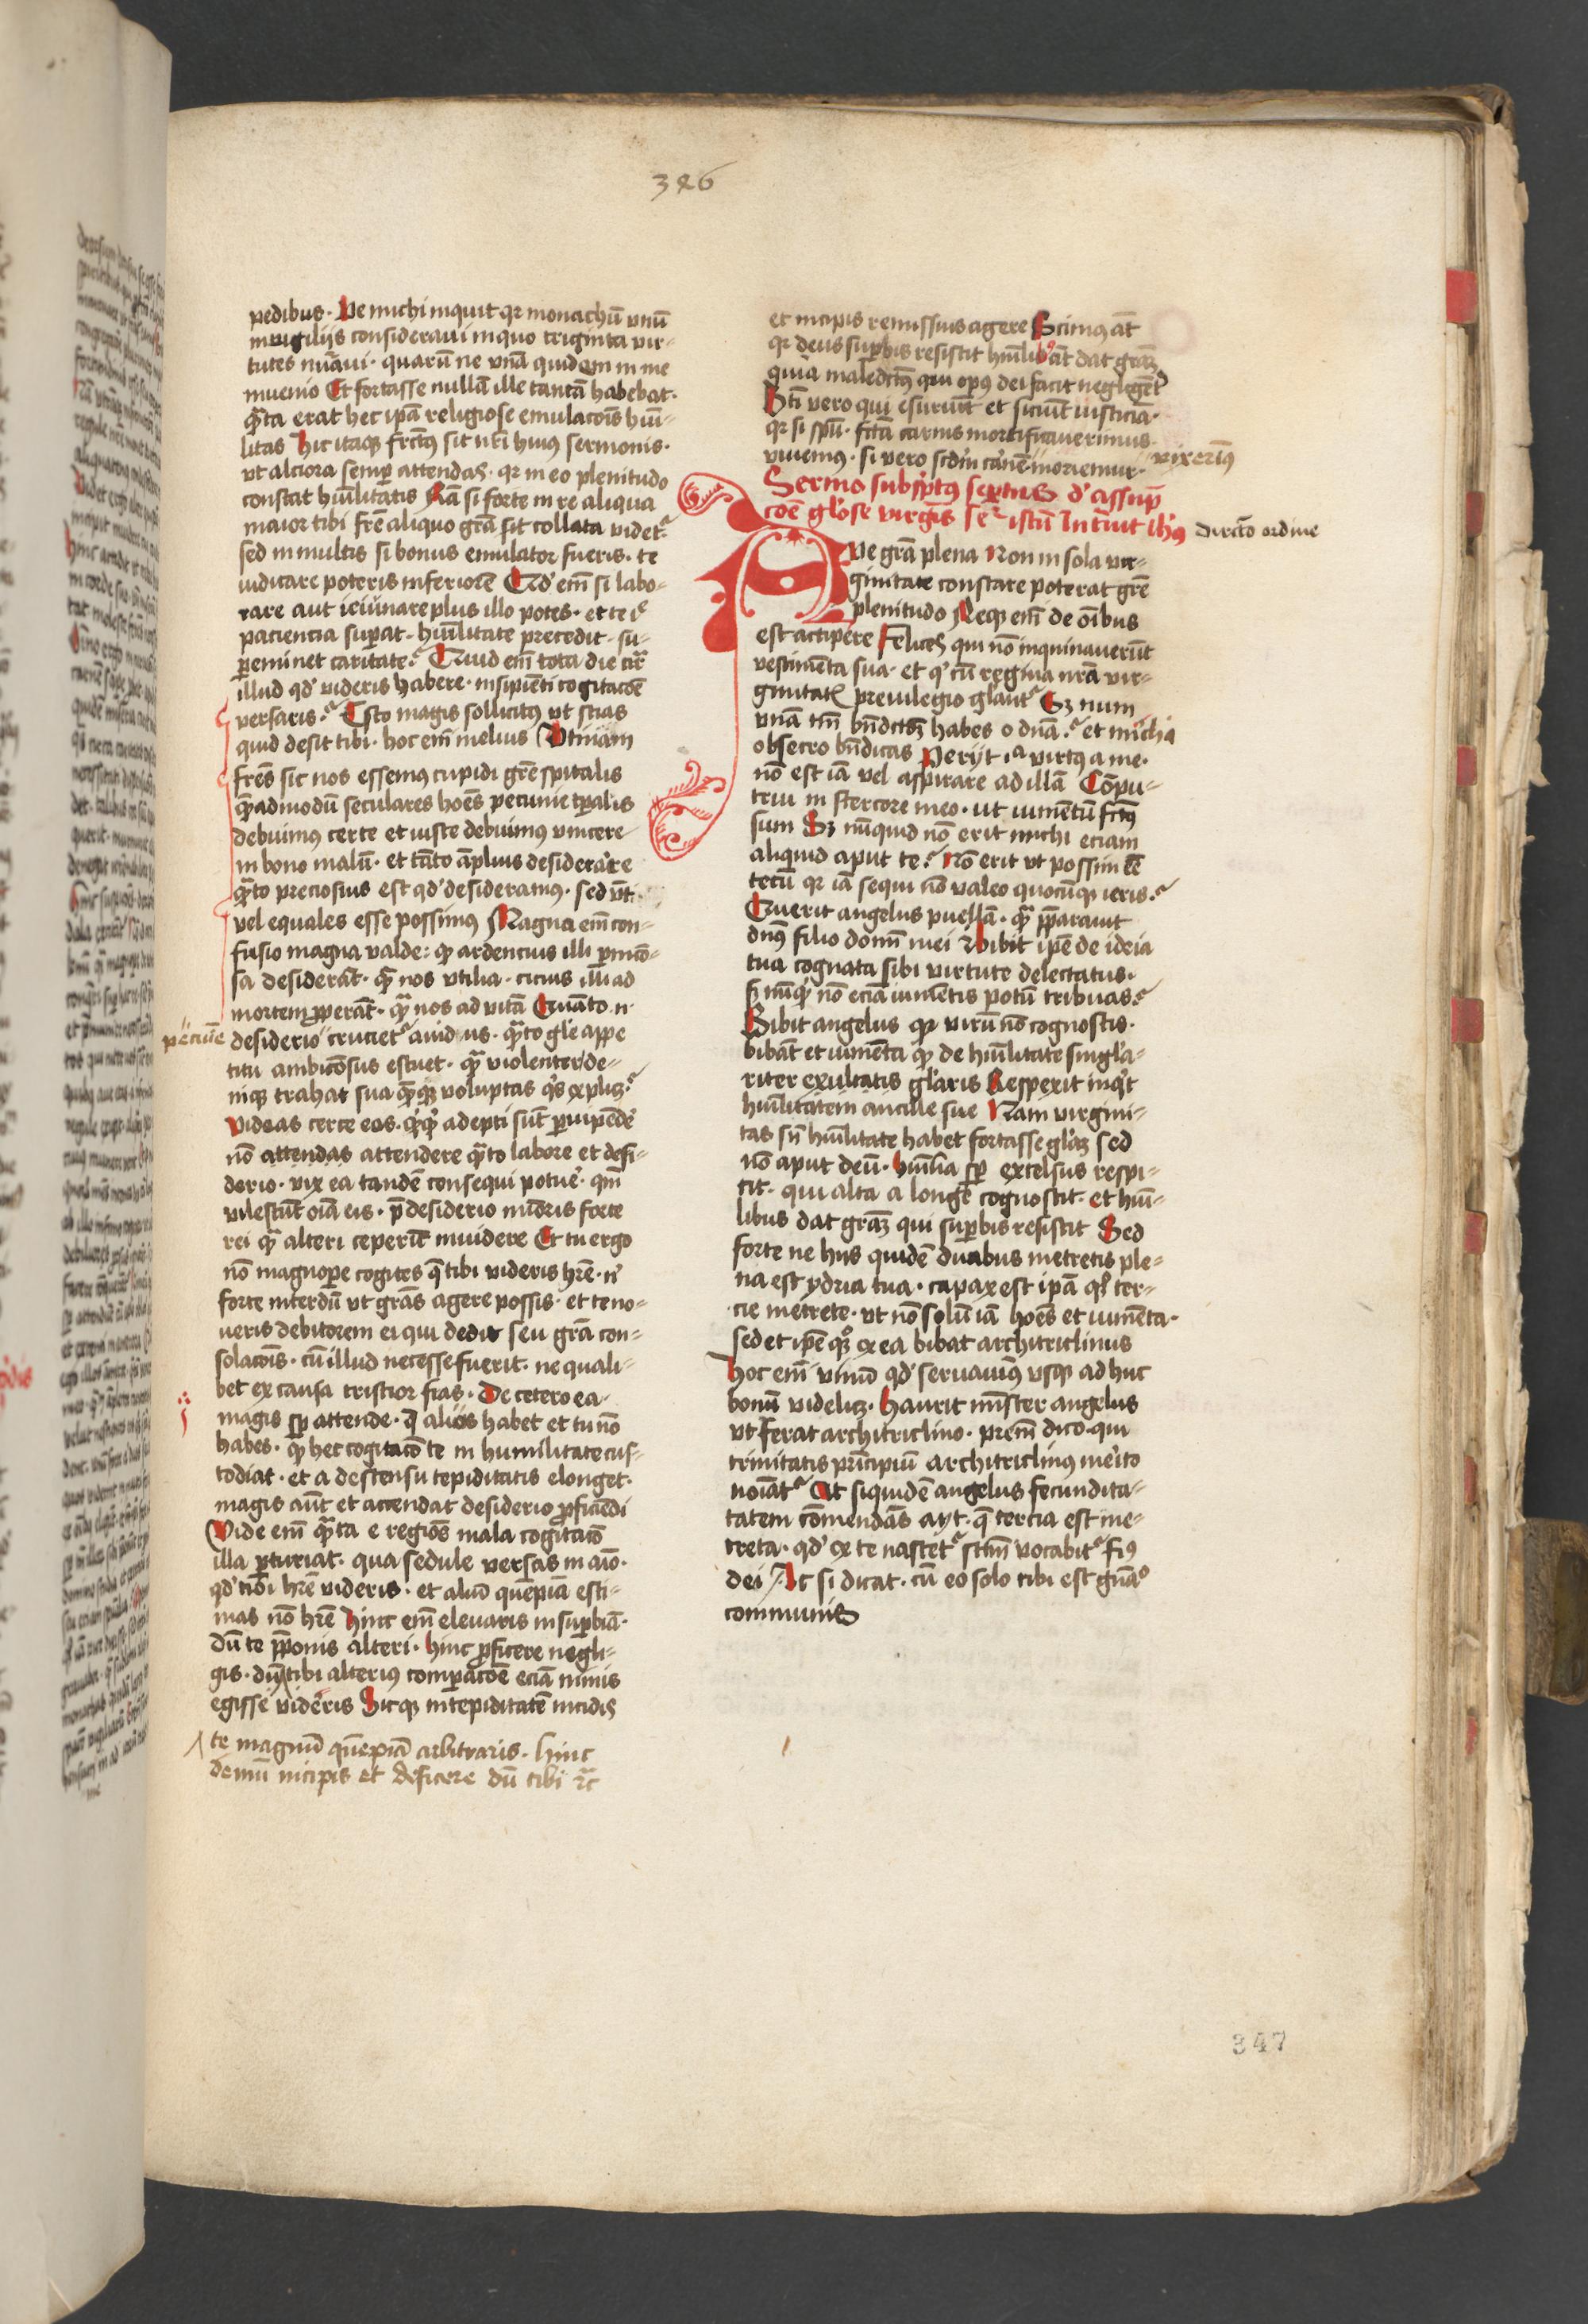 326
pedibus · Ve michi inquit qr monachū vnū
in vigilijs consideraui in quo triginta vir-
tutes nūaui · quarū ne vnā quidem in me
inuenio Et fortasse nullā ille tantā habebat ·
q̄ta erat hec ipā religiose emulacōis hūi-
litas Hic itaqꝫ fr̄ctꝰ sit ut̄i huiꝰ sermonis ·
vt alciora semꝑ attendas · qr in eo plenitudo
constat hūilitatis Nā si forte in re aliqua
maior tibi fr̄e aliquo grā sit collata videt᷑
sed in multis si bonus emulator fueris · te
iudicare poteris inferiorē Qd' em̄ si labo-
rare aut ieiūnare plus illo potes · et te iᵉ
paciencia suꝑat · hūilitate precedit · su-
ꝑeminet caritate ? Quid em̄ tota die cir̄
illud qd' videris habere · insipiēti cogitacōe
versaris ? Esto magis sollicitꝰ vt scias
quid desit tibi · hoc em̄ melius Vtinam
fr̄es sic nos essemꝰ cupidi gr̄e spūalis
quēadmodū seculares hoēs pecunie tꝑalis
debuimus certe et iuste debuimus vincere
in bono malū · et tāto āplius desiderare
q̄to preciosius est qd' desideramus · sed vt̄i
vel equales esse possimus Magna em̄ con-
fusio magna valde : qꝫ ardencius illi ꝑnicō-
sa desiderāt · q̄ nos vtilia · cicius illi ad
mortem ꝓperāt · q̄ nos ad vitā Quāto n·
pecunie
desiderio cruciet᷑ auidus · q̄to gl'e appe
titu ambicōsus estuet · q̄ violenter de-
niqꝫ trahat sua quēqꝫ voluptas qⁱs explicꝫ ?
Videas certe eos · qⁱqꝫ adepti sūt ꝑuipēde'
nō attendas attendere q̄to labore et desi-
derio · vix ea tandē consequi potue' · qm̄
vilescūt oīa eis · p̄ desiderio mīoris forte
rei q̄ alteri ceperīt inuidere Et tu ergo
nō magnoꝑe cogites q̄ tibi videris hr̄e · nⁱ
forte interdū vt grās agere possis · et te no-
ueris debitorem ei qui dedit seu grā con-
solacōis · cū illud necesse fuerit · ne quali-
bet ex causa tristior fias · De cetero ea
magis sꝑ attende · q̄ alius habet et tu nō
habes · qꝫ hec cogitacō te in humilitate cus-
todiat · et a descensu tepiditatis elonget ·
magis aūt et accendat desiderio ꝓficiēdi
Vide em̄ q̄ta e regiōe mala cogitacō
illa ꝑturiat · qua sedule versas in aīo ·
qd' tibi hr̄e videris · et aliū quēpiā esti-
mas nō hr̄e Hinc em̄ eleuaris in suꝑbiā ·
dū te p̄ponis alteri · hinc ꝓficere negli-
gis · dū tibi alteriꝰ comꝑacōe eciā nimis
egisse videris Sicqꝫ in tepiditatē incidis
te magnū quēpiā arbitraris · hinc
demū incipis et deficere dū tibi r̄c
et incipis remissius agere Scimꝰ āt
qr deus suꝑbis resistit hūilibꝰ āt dat grāꝫ
quia maledictꝰ qui opꝰ dei facit negligēt᷑
Bt̄i vero qui esuriūt et siciūt iusticiā ·
qr si spū · fct̄a carnis mortificauerimus
viuemus · si vero scdm̄ carnē moriemur ·
vixerimꝰ
Sermo subsꝑtꝰ sextus d' assūp̄
cōe gl'ose virgīs se᷑ istū Intrauit ihꝰ
directo ordine
Aue grā plena Non in sola vir-
ginitate constare poterat gr̄e
plenitudo Neqꝫ em̄ de oībus
est accipere Felices qui nō inquinauerūt
vestimēta sua · et qⁱ cū regina nr̄a vir-
ginitatꝭ preuilegio gl'ant᷑ Sꝫ num
vnā tm̄ bn̄dictōꝫ habes o dn̄a ? et michi
obsecro bn̄dicas Perijt iᵃ virtꝰ a me ·
nō est iā vel aspirare ad illā Cōpu-
trui in stercore meo · ut iumētū fctꝰ
sum Sꝫ nūquid nō erit michi eciam
aliquid aput te ? Nō erit vt possim eē
tecū qr iā sequi nō valeo quocūqꝫ ieris ?
Querit angelus puellā · q̄ p̄parauit
dn̄ꝰ filio domī mei Bibit ip̄e de idria
tua cognata sibi virtute delectatus ·
sꝫ nūqⁱd nō eciā iumētis potū tribuas ?
Bibit angelus qꝫ virū nō cognoscis ·
bibāt et iumēta qꝫ de hūilitate singl'a-
riter exultatis gl'aris Respexit inqⁱt
hūilitatem ancille sue Nam virgini-
tas sn̄ hūilitate habet fortasse gl'aꝫ sed
nō aput deū · hūilia sꝑ excelsus respi-
cit · qui alta a longe cognoscit · et hūi-
libus dat grāꝫ qui suꝑbis resistit Sed
forte ne hiis quidē duabus metretis ple-
na est ydria tua · capax est ipā qꝫ ter-
cie metrete · vt nō solū iā hoēs et iumēta ·
sed et ip̄e qꝫ ex ea bibat architriclinus
Hoc em̄ vinū qd' seruauimꝰ vsqꝫ ad huc
bonū videlicꝫ · Haurit mīster angelus
vt ferat architriclino · prem̄ dico · qui
trinitatis prīcipiū architriclinꝰ me'ito
noīat᷑ At siquidē angelus fecundita-
tatem cōmendās ayt · q̄ tercia est me-
treta · qd' ex te nascet᷑ sc̄m vocabit᷑ fiꝰ
dei Ac si dicat · cū eo solo tibi est gn̄aᵒ
communis
347